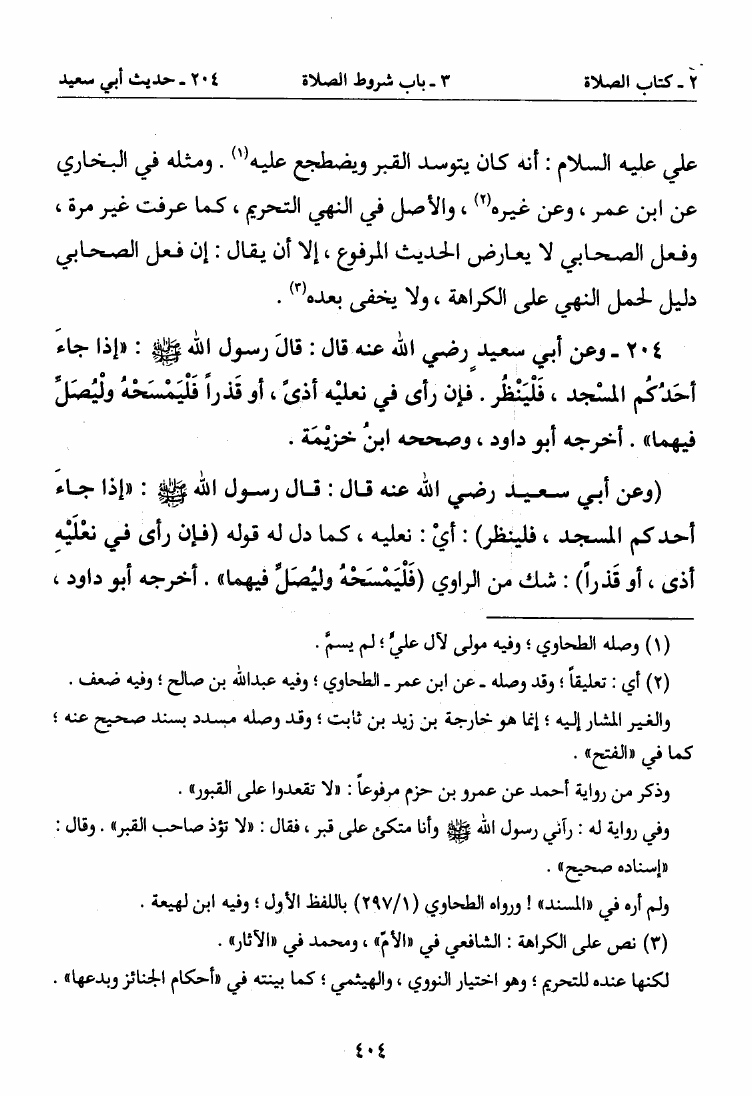 ٢ ـ كتاب الصلاة ٣ ـ باب شروط الصلاة ٢٠٤ ـ حديث أبي سعيد
علي عليه السلام : أنه كان يتوسد القبر ويضطجع عليه(١) . ومثله في البخاري
عن ابن عمر ، وعن غيره(٢) ، والأصل في النهي التحريم ، كما عرفت غير مرة ،
وفعل الصحابي لا يعارض الحديث المرفوع ، إلا أن يقال : إن فعل الصحابي
دليل لحمل النهي على الكراهة ، ولا يخفى بعده(٣) .
٢٠٤ ـ وعن أبي سعيدٍ رضي الله عنه قال : قالَ رسول الله ﷺ : «إذا جاءَ
أحَدُكُم المسْجد ، فَلْيَنْظُر . فإن رأى في نعليْه أذىً ، أو قَذراً فَلْيَمْسَحْهُ ولْيُصَلِّ
فيهما» . أخرجه أبو داود ، وصححه ابنُ خزيْمَة .
(وعن أبي سعيد رضي الله عنه قال : قال رسول الله ﷺ : «إذا جاءَ
أحدكم المسجد ، فلينظر) : أيْ : نعليه ، كما دل له قوله (فإن رأى في نعْلَيْهِ
أذى ، أو قَذراً) : شك من الراوي (فَلْيَمْسَحْهُ وليُصَلِّ فيهما» . أخرجه أبو داود ،
(١) وصله الطحاوي ؛ وفيه مولى لآل عليٍّ ؛ لم يسمَّ .
(٢) أي : تعليقاً ؛ وقد وصله ـ عن ابن عمر ـ الطحاوي ؛ وفيه عبدالله بن صالح ؛ وفيه ضعف .
والغير المشار إليه ؛ إنما هو خارجة بن زيد بن ثابت ؛ وقد وصله مسدد بسند صحيح عنه ؛
كما في «الفتح» .
وذكر من رواية أحمد عن عمرو بن حزم مرفوعاً : «لا تقعدوا على القبور» .
وفي رواية له : رآني رسول الله ﷺ وأنا متكئ على قبر ، فقال : «لا تؤذ صاحب القبر» . وقال :
«إسناده صحيح» .
ولم أره في «المسند» ! ورواه الطحاوي (٢٩٧/١) باللفظ الأول ؛ وفيه ابن لهيعة .
(٣) نص على الكراهة : الشافعي في «الأمّ» ، ومحمد في «الآثار» .
لكنها عنده للتحريم ؛ وهو اختيار النووي ، والهيثمي ؛ كما بينته في «أحكام الجنائز وبدعها» .
٤٠٤